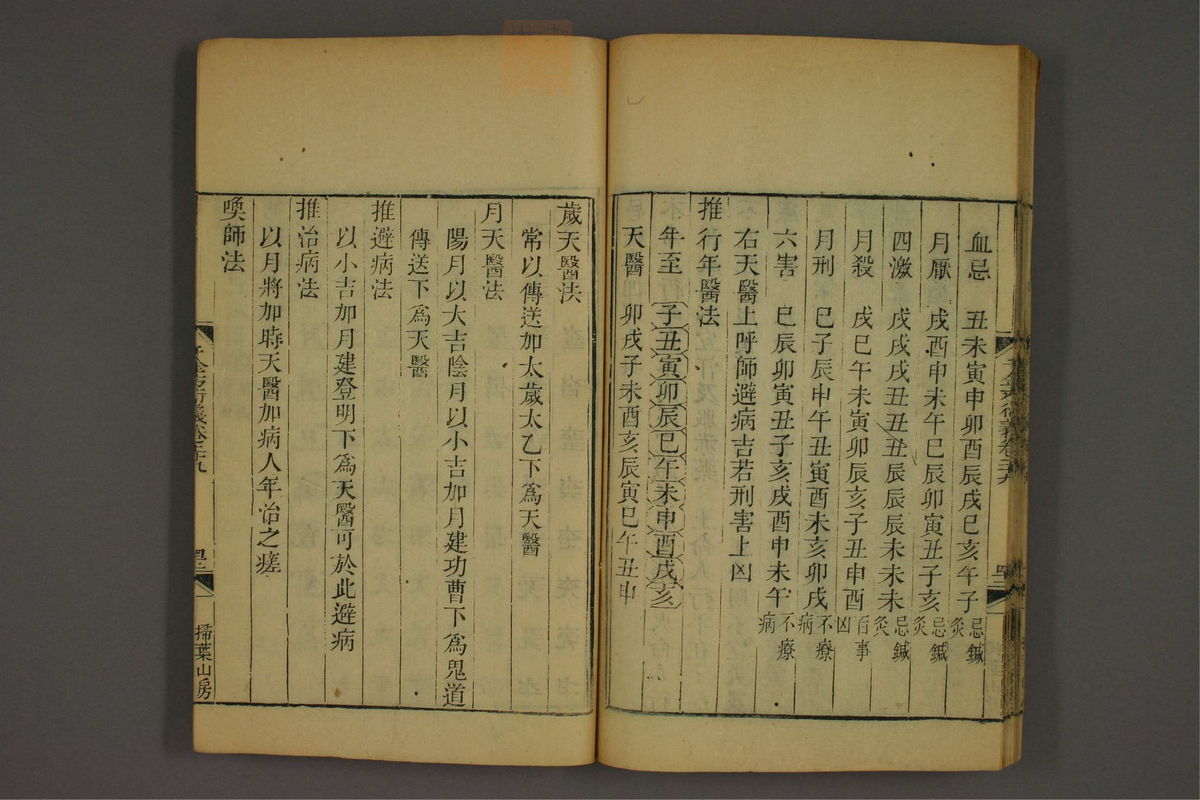 血忌 丑未寅申卯酉辰戌巳亥午子 忌鍼灸
月厭 戌酉申未午巳辰卯寅丑子亥 忌鍼灸
四激 戌戌戌丑丑丑辰辰辰未未未 忌鍼灸
月殺 戌巳午未寅卯辰亥子丑申酉 百事凶
月刑 巳子辰申午丑寅酉未亥卯戌 不療病
六害 巳辰卯寅丑子亥戌酉申未午 不療病
右天醫上呼師避病吉若刑害上凶
推行年醫法
年至 子丑寅卯辰巳午未申酉戌亥
天醫 卯戌子未酉亥辰寅巳午丑申
歲天醫法
常以傳送加太歲太乙下爲天醫
月天醫法
陽月以大吉陰月以小吉加月建功曹下爲鬼道
傳送下爲天醫
推避病法
以小吉加月建登明下爲天醫可於此避病
推治病法
以月將加時天醫加病人年治之瘥
喚師法
千金要方衍義卷二十九
掃葉山房